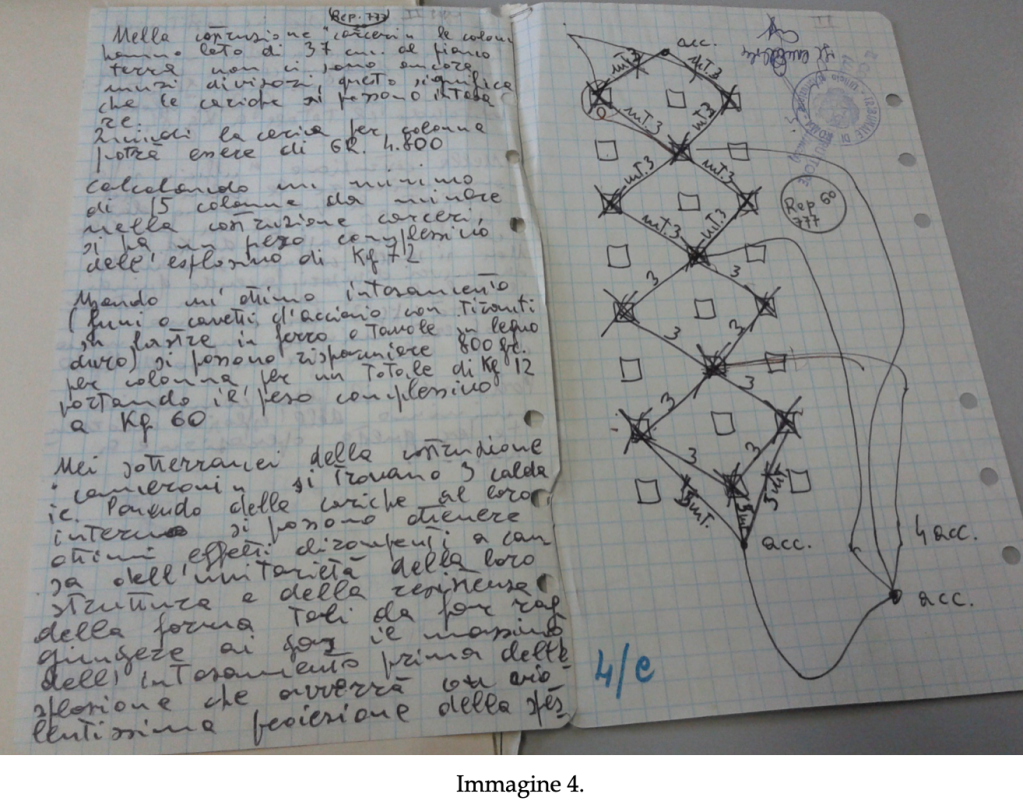 Rep. 777
Nella costruzione "carceri" le colonne
hanno lato di 37 cm. al piano
terra non ci sono ancora
muri divisori, questo significa
che le cariche si possono intasa
re.
Quindi la carica per colonna
potrà essere di GR. 4.800
Calcolando un minimo
di 15 colonne da minare
nella costruzione carceri,
si ha un peso complessivo
dell'esplosivo di Kg 72
Usando un'ottimo intasamento
(funi o cavetti d'acciaio con tiranti
su lastre in ferro o tavole in legno
duro) si possono risparmiare 800 gr.
per colonna, per un totale di Kg 12
portando il peso complessivo
a Kg 60
Nei sotterranei della costruzione
"cameroni" si trovano 3 calda
ie. Ponendo delle cariche al loro
interno si possono ottenere
ottimi effetti dirompenti a cau
sa dell'unitarietà della loro
struttura e della resistenza
della forma tali da far rag
giungere ai gas il massimo
dell'intasamento prima dell'e
splosione che avverrà con vio
lentissima proiezione delle
acc.
mT.3
mT.3
mT.3
mT.3
mT.3
mT.3
mT.3
mT.3
3
3
3
3
3
3
3
3
3mT.
3mT.
3mT.
acc.
4 acc.
acc.
Rep 60
777
II
TRIBUNALE DI
4/e
Immagine 4.